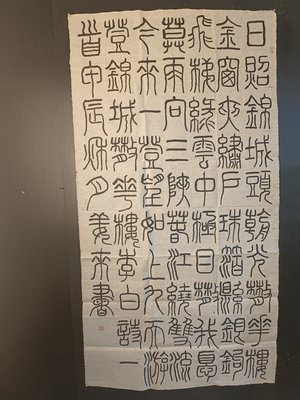 日照錦城頭朝光散花樓
金窗夾繡戶珠箔懸銀鉤
飛梯綠雲中極目散我憂
莫雨向三陝春江繞雙流
今來一登望如上九天游
登錦城散花樓李白詩一
首甲辰秋月姜來書